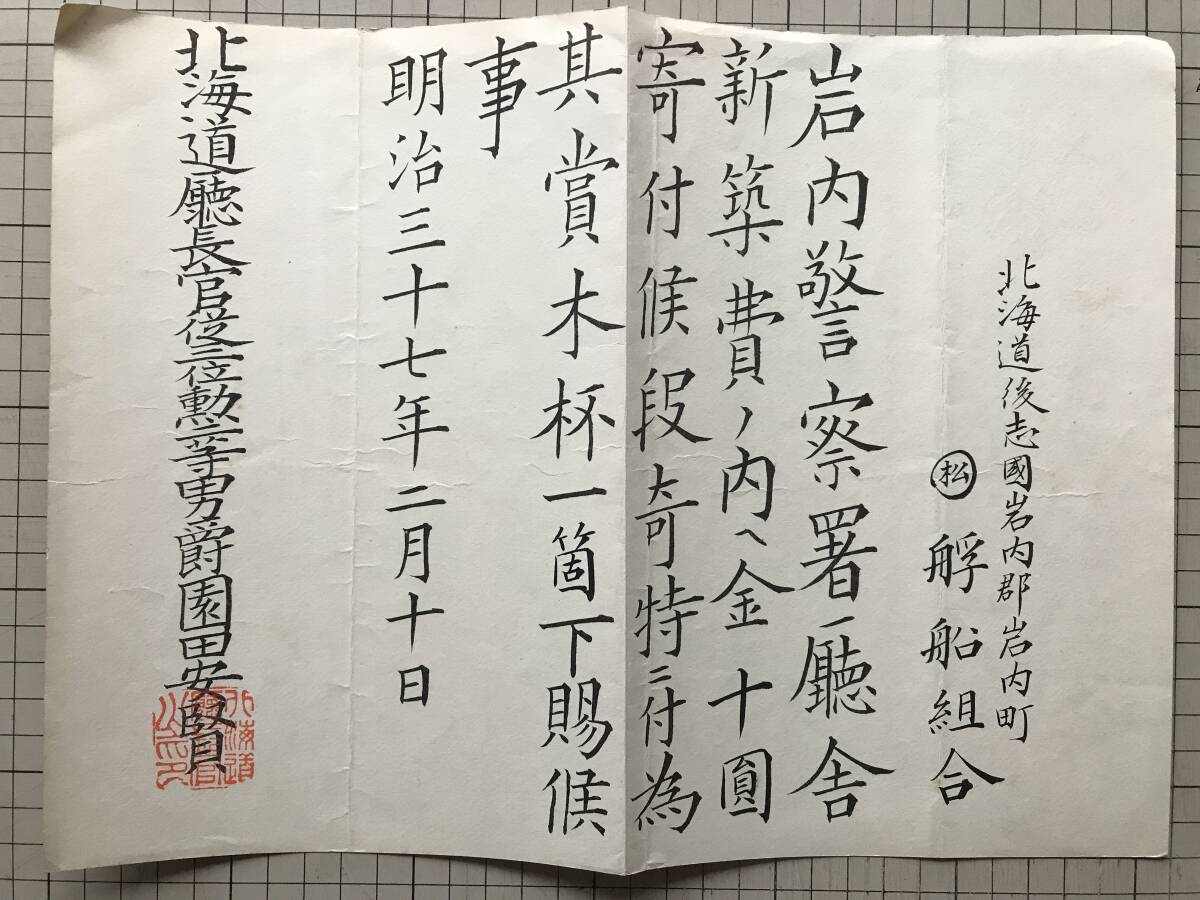 北海道後志國岩内郡岩内町
松 艀船組合
岩内警察署廳舎
新築費ノ内ヘ金十圓
寄付候段奇特ニ付為
其賞木杯一箇下賜候
事
明治三十七年二月十日
北海道廳長官従三位勲二等男爵園田安賢